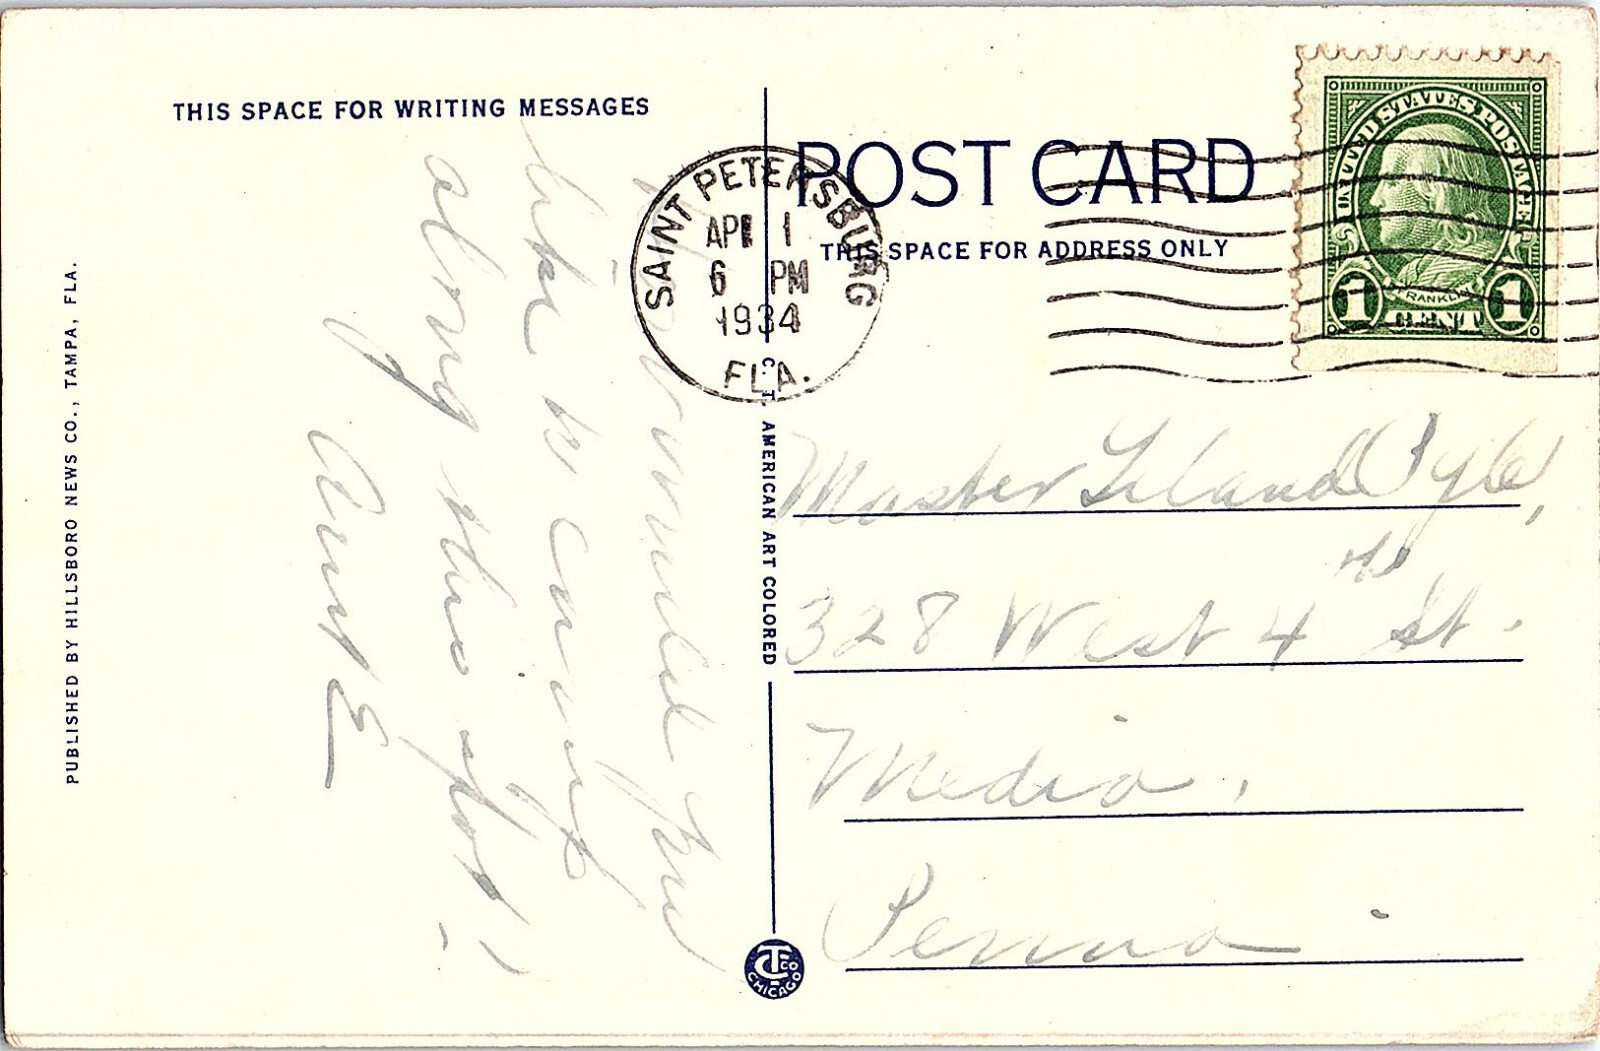 THIS SPACE FOR WRITING MESSAGES
POST CARD
THIS SPACE FOR ADDRESS ONLY
SAINT PETERSBURG
APR 1
6 PM
1934
FLA.
UNITED STATES POSTAGE
FRANKLIN
1 CENT 1
would you
like to
along this
Aunt E
Master Leland Pyle,
328 West 4th St.
Media,
Penna.
C. T. AMERICAN ART COLORED
PUBLISHED BY HILLSBORO NEWS CO., TAMPA, FLA.
CT CO
CHICAGO